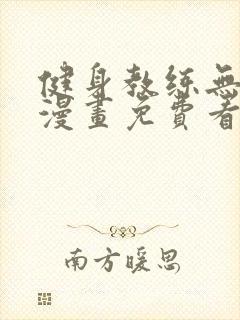 健身教练無
漫畫免費看
南方暖思